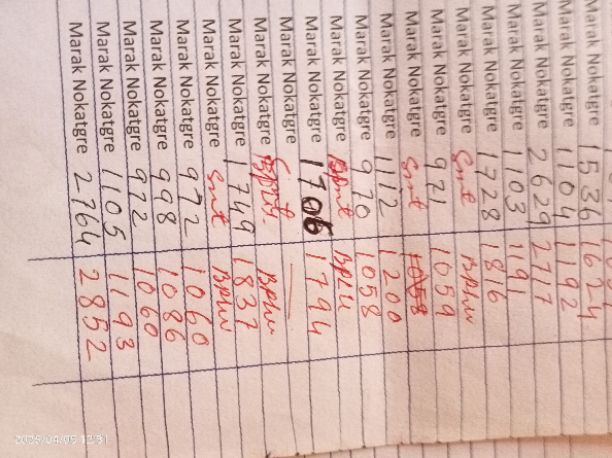 Marak Nokatgre 1536 1624
Marak Nokatgre 1104 1192
Marak Nokatgre 2629 2717
Marak Nokatgre 1103 1191
Marak Nokatgre 1728 1816
Marak Nokatgre Smt BPLW
Marak Nokatgre 971 1059
Marak Nokatgre Smt
Marak Nokatgre 1112 1200
Marak Nokatgre 970 1058
Marak Nokatgre BPLW
Marak Nokatgre 1706 1794
Marak Nokatgre
Marak Nokatgre BPLW
Marak Nokatgre 1749 1837
Marak Nokatgre Smt BPLW
Marak Nokatgre 972 1060
Marak Nokatgre 998 1086
Marak Nokatgre 972 1060
Marak Nokatgre 1105 1193
Marak Nokatgre 2764 2852